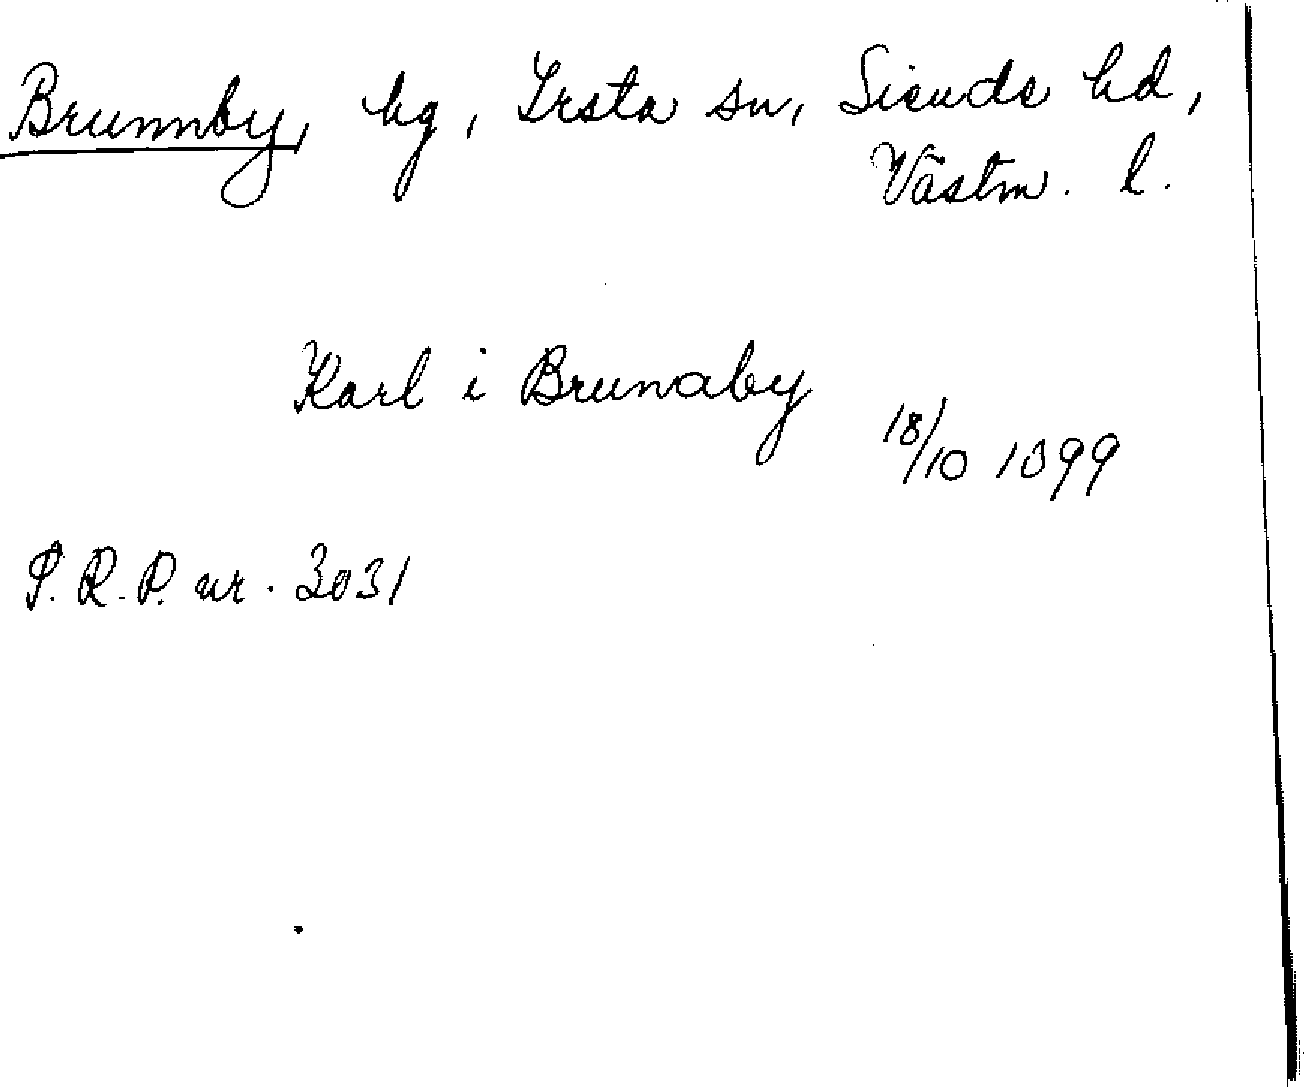 Brunnby, hg, Irsta sn, Siende hd,
Västm. l.
Karl i Brunaby
18/10 1399
S.R.P. nr. 3031